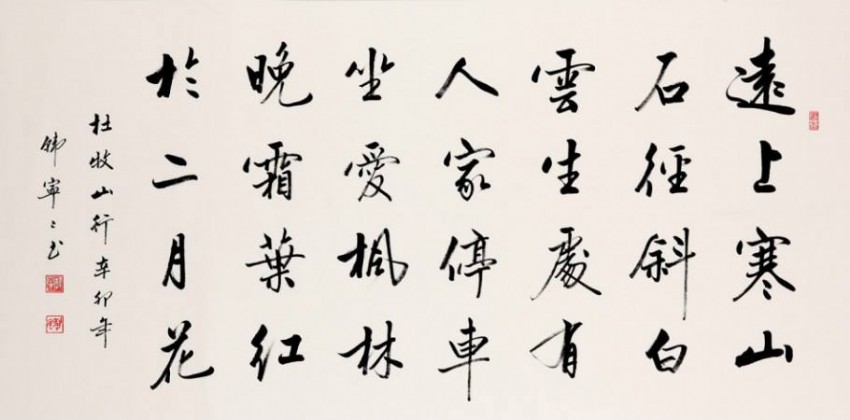 遠上寒山
石徑斜白
雲生處有
人家停車
坐愛楓林
晚霜葉紅
於二月花
杜牧山行辛卯年
寧〻书